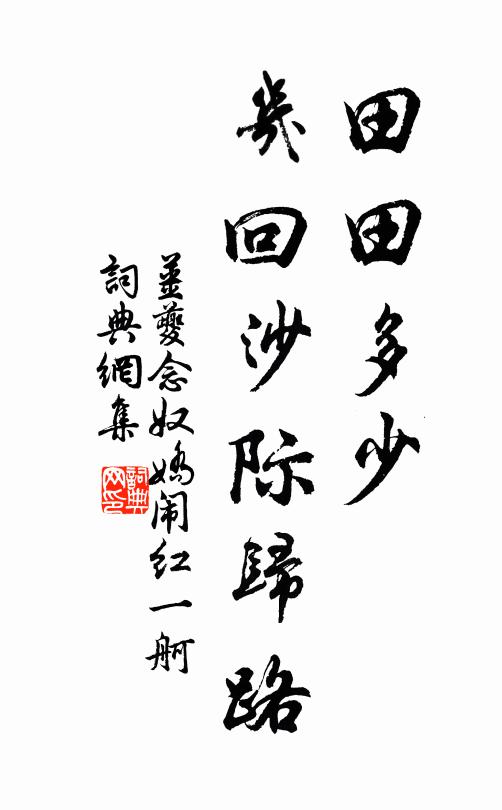 田田多少
幾回沙际歸路
姜夔念奴嬌闹红一舸
詞典網集
詞典網印